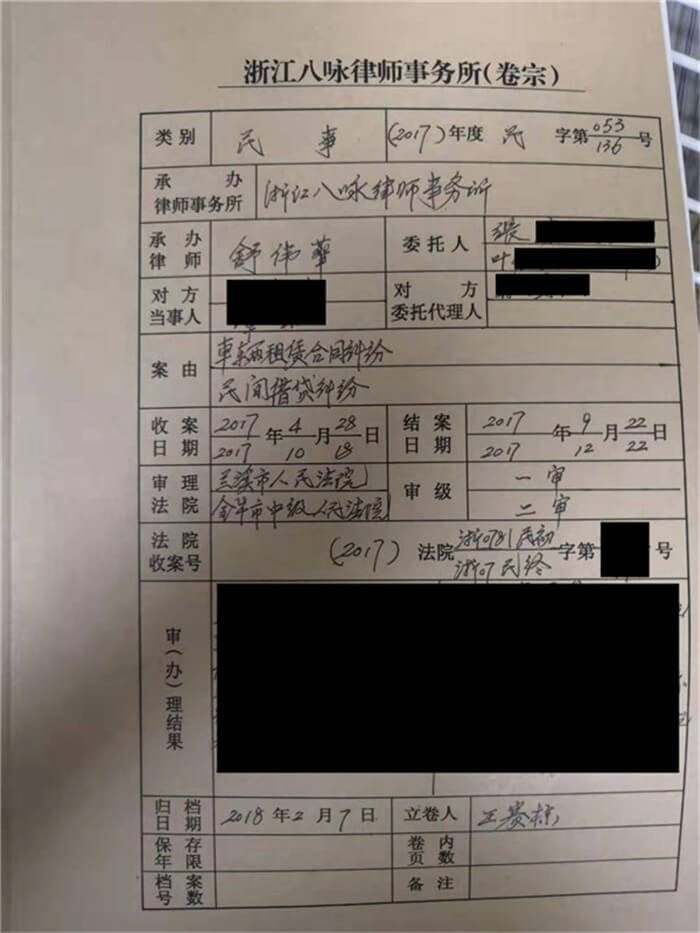 浙江八咏律师事务所(卷宗)
类别 民事 (2017)年度 民 字第 053 号
136
承办律师事务所 浙江八咏律师事务所
承办律师 舒伟华 委托人 张
叶
对方当事人 对方委托代理人
案由 车辆租赁合同纠纷
民间借贷纠纷
收案日期 2017年4月28日 结案日期 2017年9月22日
2017 10 18 2017 12 22
审理法院 兰溪市人民法院 审级 一审
金华市中级人民法院 二审
法院收案号 (2017) 法院 浙0781民初 字第 号
浙07民终
审(办)理结果
归档日期 2018年2月7日 立卷人 王贵标
保存年限 卷内页数
档案号数 备注